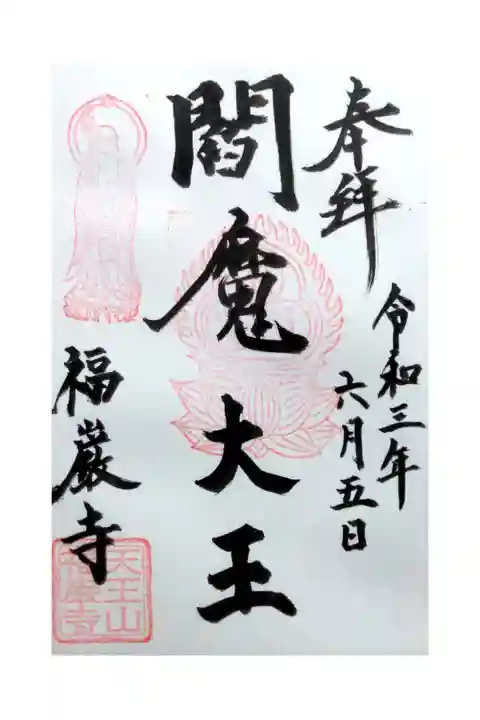 奉拝
令和三年
六月五日
閻魔大王
福巌寺
天王山
福厳寺